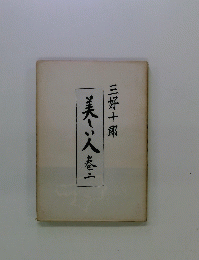 三好十郎
美しい人 巻二